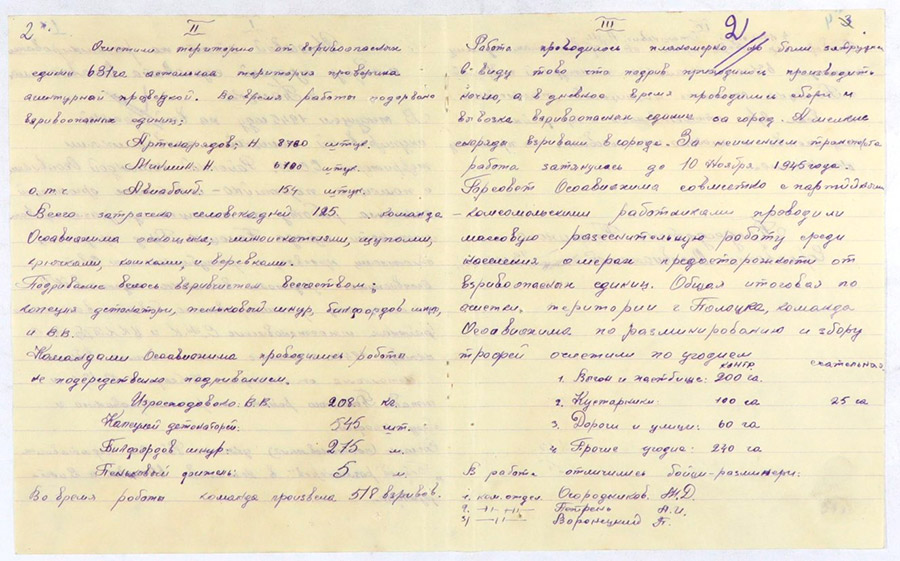 2
II
Очистили територию от взривоопасных
едениц 631 га астальноя територия проверина
агитурной празведкой. Во время работы подорвано
взривоопасных единиц:
Артснарядов: Н 8740 штук.
Минмин. Н. 6700 штук.
о. т. ч. Авиабомб: - 154 штук.
Всего затрачено человекадней 125. команда
Осоавиахима оснощена: миноискателями, щупоми,
крючками, кошками, и веревками.
Подривание велось взривчистом веществом:
капсуля детонатори, пеньковый шнур, бикфордов шнур,
и В.В.
Командами Осоавиахима проводились работы
не подередствено подриванием.
Израсподовоно. В.В. 208 кг.
Капсулей детонаторей: 545 шт.
Бикфордов шнур 215 м.
Пеньковый фитель: 5 м.
Во время работы команда произвела 518 взривов.
III
2) 4 3
Работа проводилось планомерно были затруднен
в виду тово что подрив приходилось производить
ночью, а в дневное время проводились сбори и
вывозка взривоопасных единиц за город. А мелкие
снаряда взривали в города. За неимением транспорта
работа затянулась до 10 Ноября 1945 года.
Горсовет Осоавиахима совместно с партийными
- комсомольскими работниками проводили
массовую разеснительную работу среди
населения о мерах предосторожности от
взривоопасных единиц. Общая итоговая по
очистки, територии г. Полоцка, команда
Осоавиахима по разминированию и збору
трофей очистили по угодием
контр. скательная
1. Вигон и пастбище: 200 га.
2. Кустарники: 100 га 25 га
3. Дороги и улици: 60 га
4. Прочие угодие: 240 га
В работе отличились бойци-разминери:
1. ком. отдел. Огородников. М. Д
2. -II- -II- Петрень А. И.
3) -II- Воронецкий П.